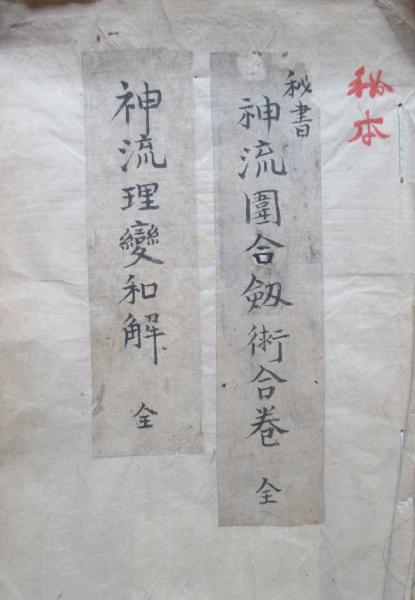 秘本
秘書
神流圍合劔術合巻 全
神流理變和解 全